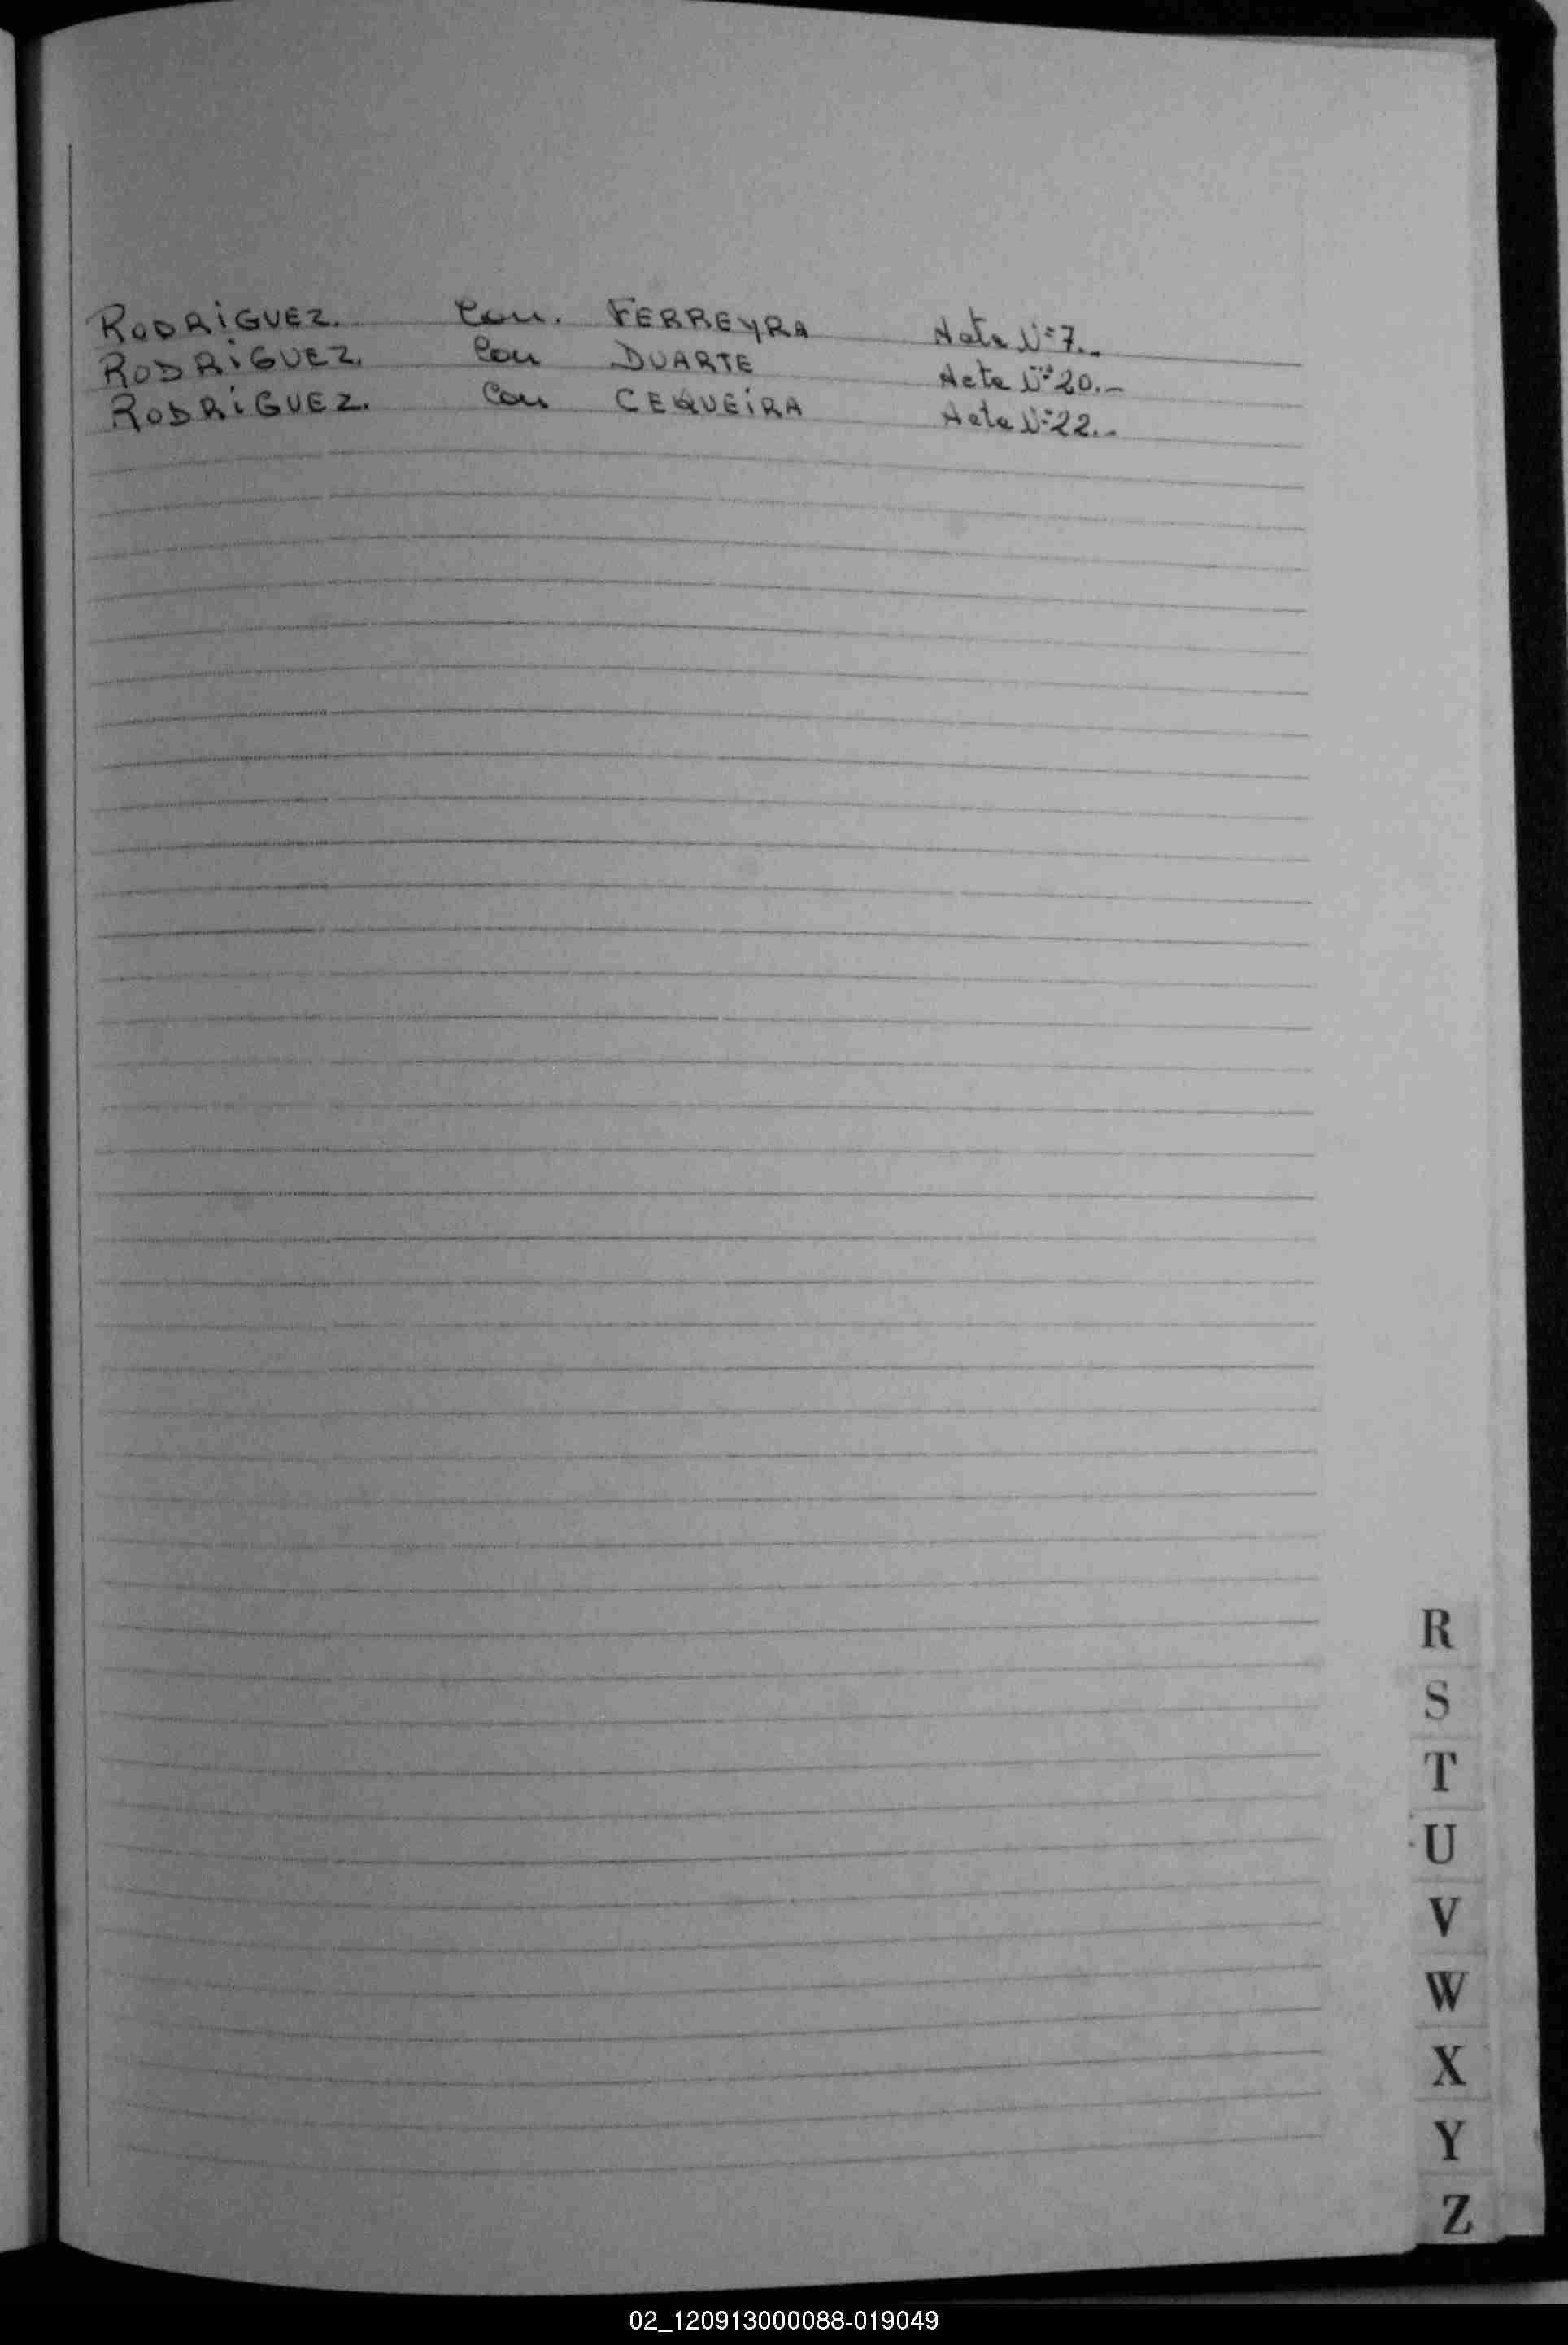 RODRiGUEZ. Con. FERREYRA Acta Nº 7.-
RODRiGUEZ. Con DUARTE Acta Nº 20.-
RODRiGUEZ. Con CEQUEiRA Acta Nº 22.-
R
S
T
U
V
W
X
Y
Z
02_120913000088-019049